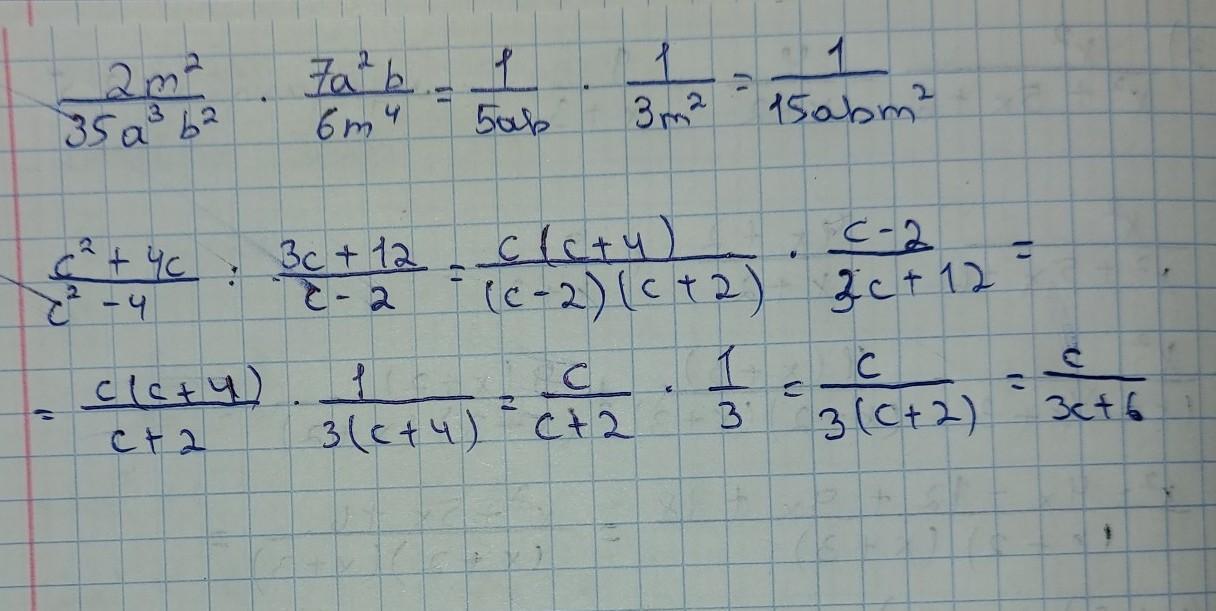 2m²/35a³b² · 7a²b/6m⁴ = 1/5ab · 1/3m² = 1/15abm²
c²+4c/c²-4 : 3c+12/c-2 = c(c+4)/(c-2)(c+2) · c-2/3c+12 =
= c(c+4)/c+2 · 1/3(c+4) = c/c+2 · 1/3 = c/3(c+2) = c/3c+6